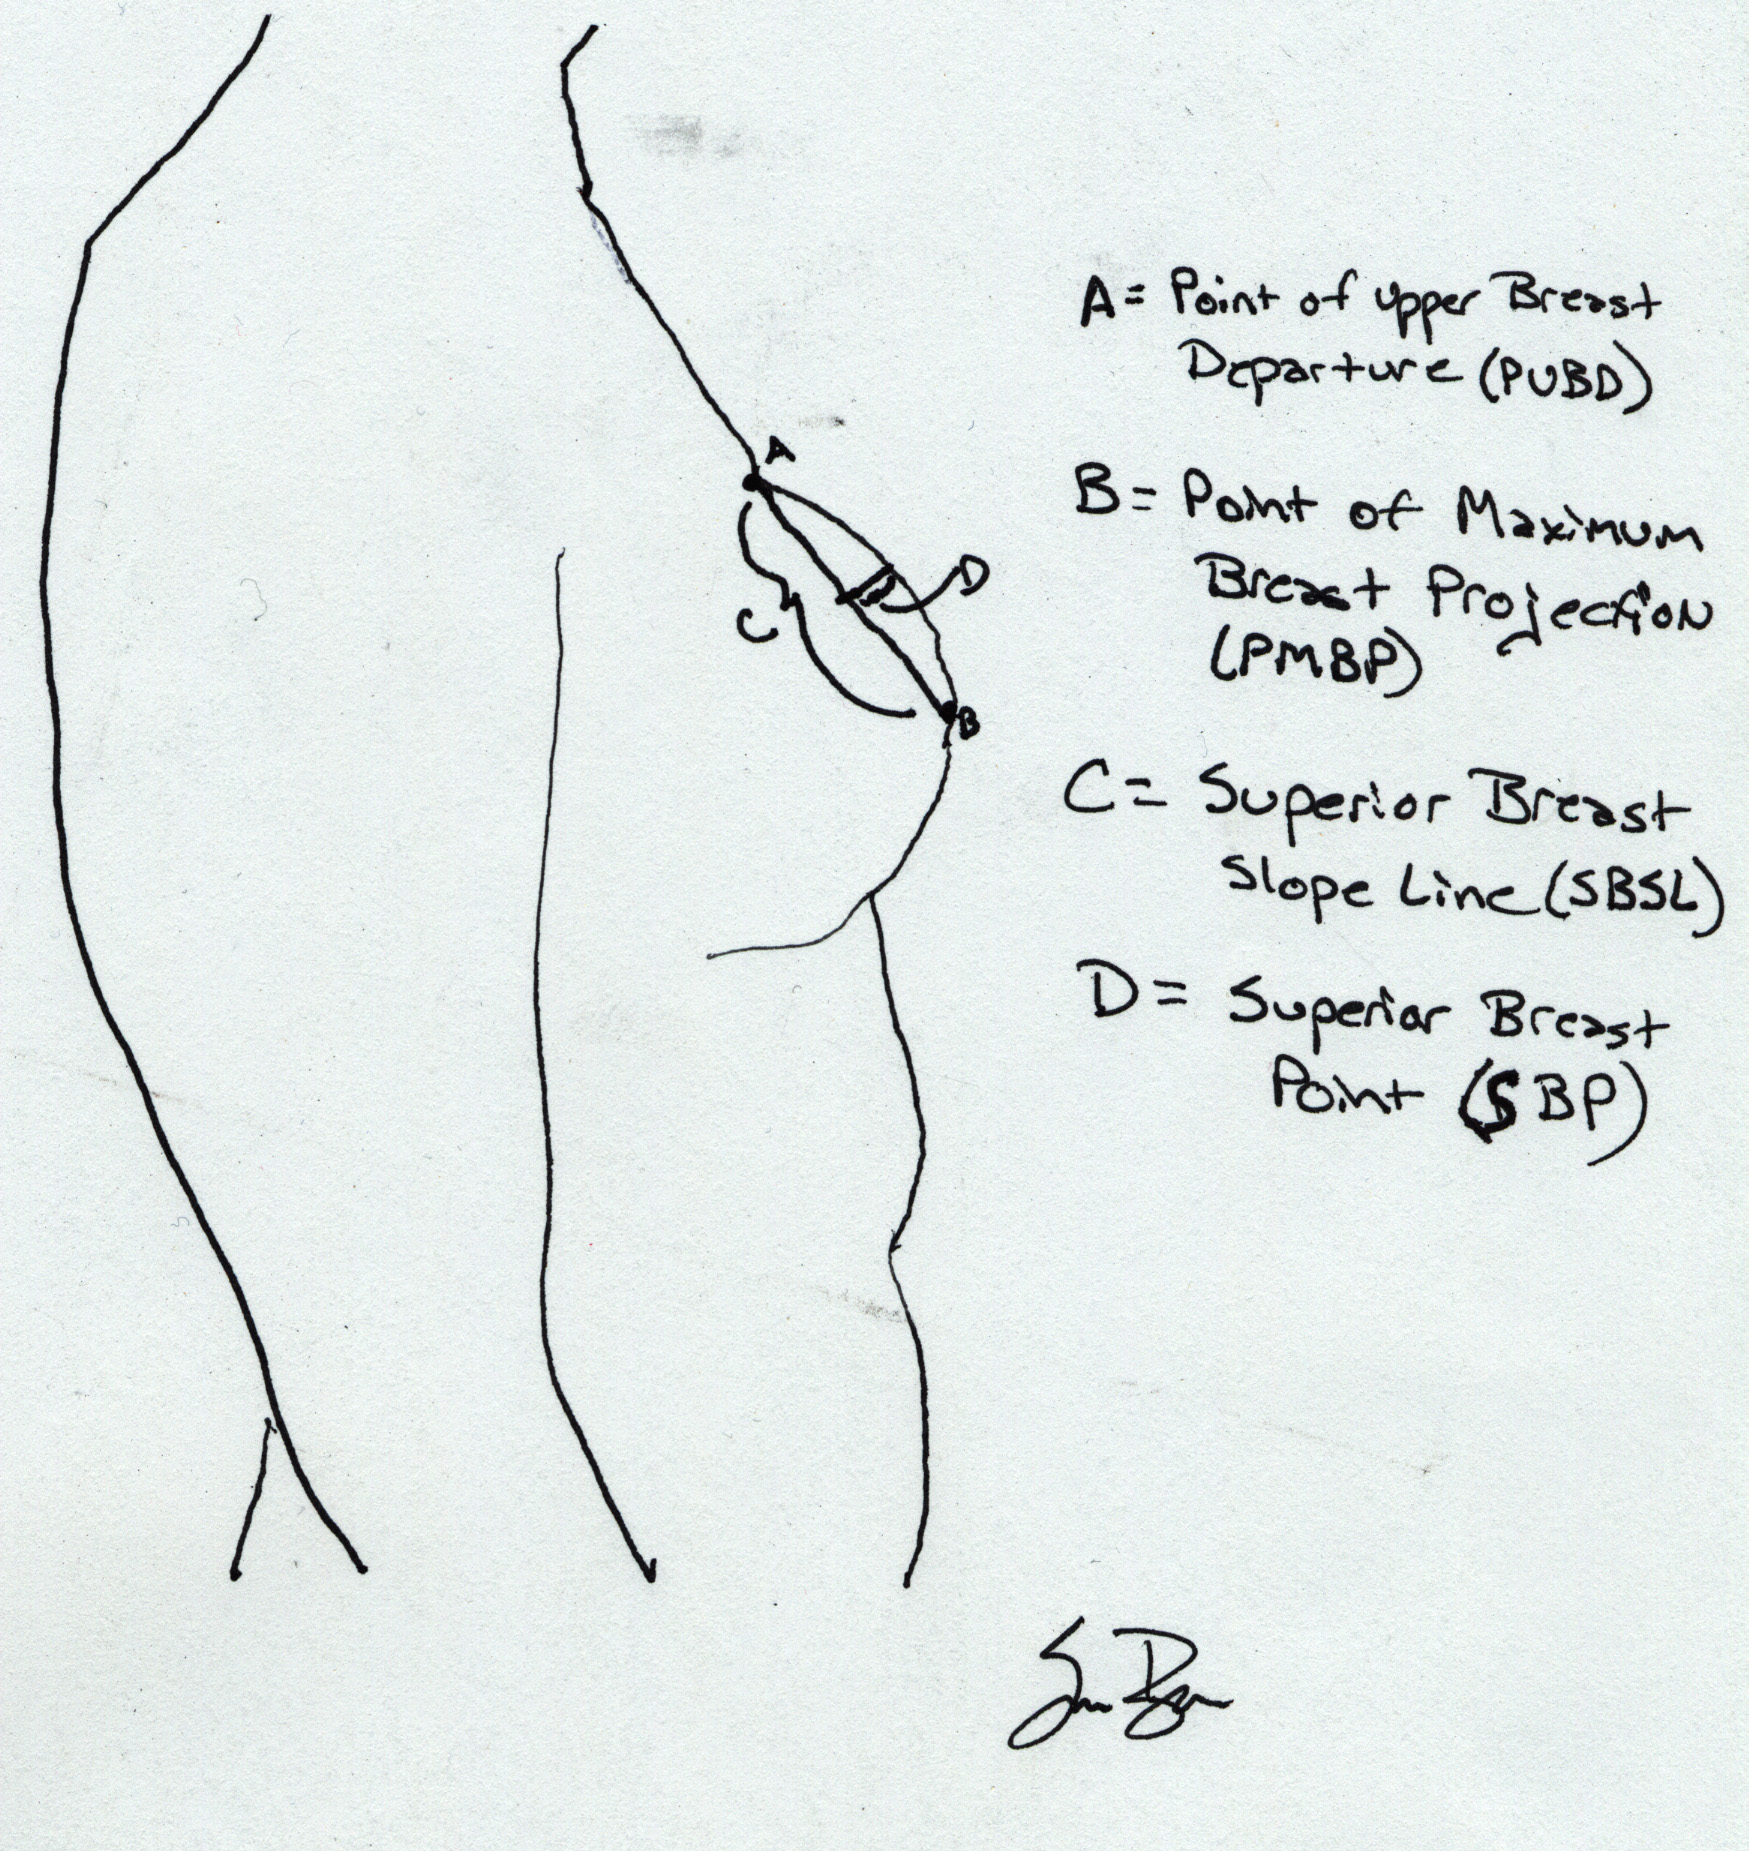 A= Point of upper Breast
Departure (PUBD)
A
B= Point of Maximum
Breast Projection
(PMBP)
D
C
B
C= Superior Breast
Slope Line (SBSL)
D= Superior Breast
Point (SBP)